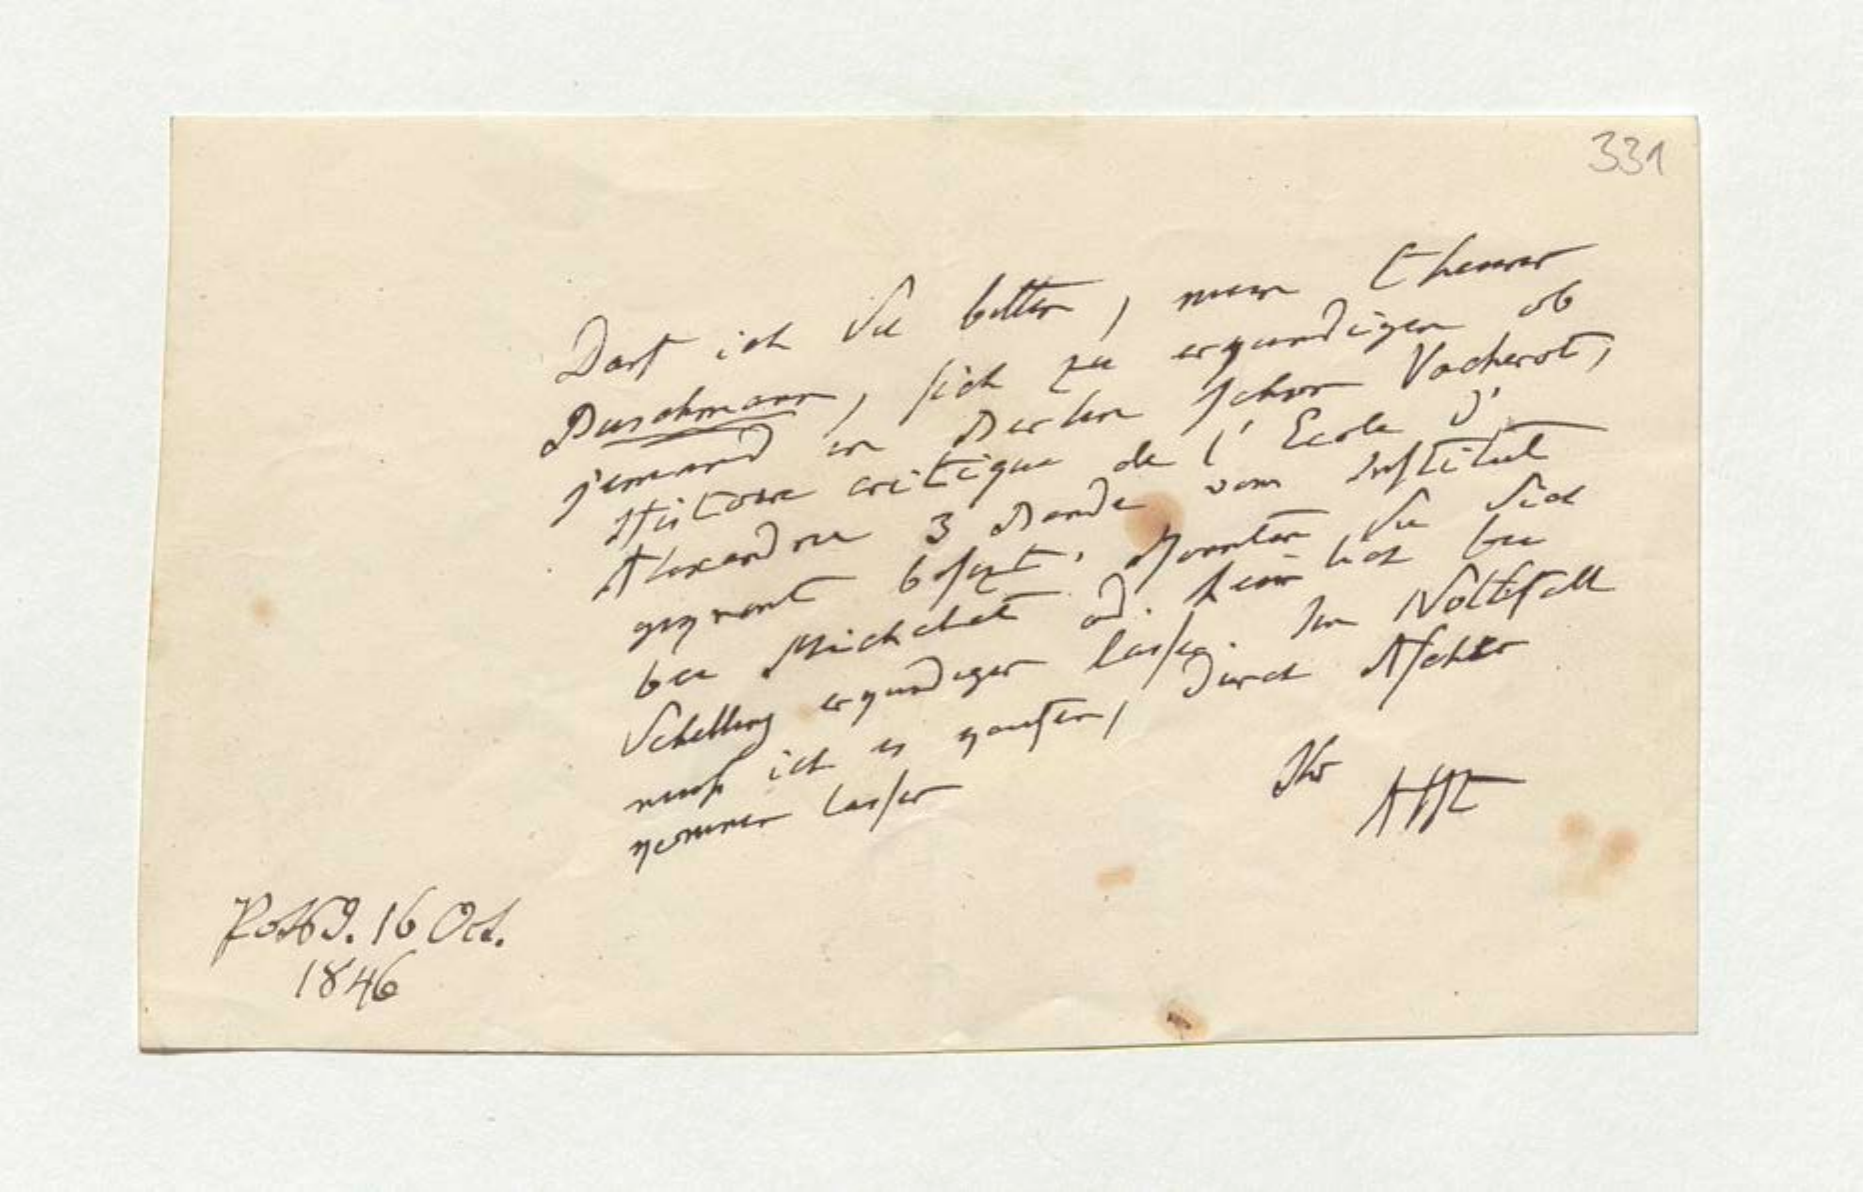 331
Darf ich Sie bitten, mein theurer
Buschmann, sich zu erkundigen ob
jemand in Berlin schon Vacherot,
Histoire critique de l'Ecole d'
Alexandrie 3 Bände vom Institut
gekrönt besizt. Konnten Sie Sich
bei Michelet od. heimlich bei
Schelling erkundigen lassen. Im Nothfall
muß ich es kaufen, durch Asher
kommen lassen
Ihr
AHt
Potsd. 16 Oct.
1846